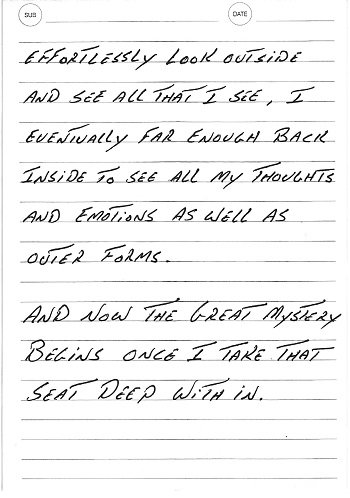 SUB
DATE
EFFORTLESSLY LOOK OUTSIDE
AND SEE ALL THAT I SEE, I
EVENTUALLY FAR ENOUGH BACK
INSIDE TO SEE ALL MY THOUGHTS
AND EMOTIONS AS WELL AS
OUTER FORMS.
AND NOW THE GREAT MYSTERY
BEGINS ONCE I TAKE THAT
SEAT DEEP WITH IN.